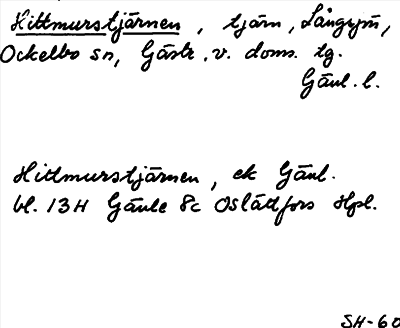 Hittmurstjärnen, tjärn, Långvm,
Ockelbo sn, Gästr. v. doms. tg.
Gävl. l.
Hittmurstjärnen, ek Gävl.
bl. 13H Gävle 8c Oslättfors Hpl.
SH-60